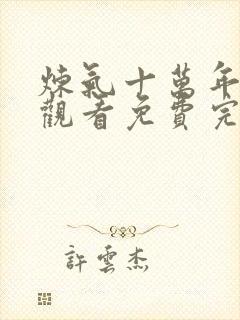 煉氣十萬年
觀看免費完
許雲杰